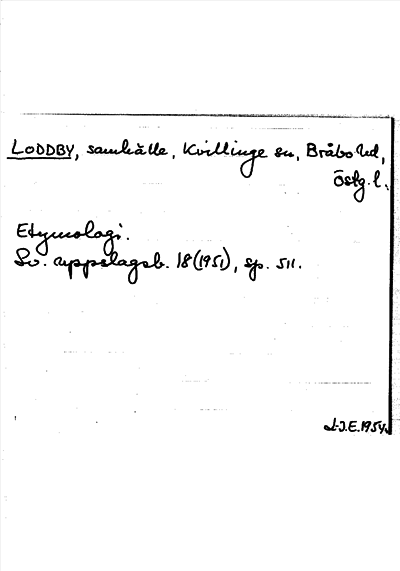 LODDBY, samhälle, Kvillinge sn, Bråbo hd,
Östg. l.
Etymologi.
Sv. uppslagsb. 18 (1951), sp. 511.
L-J.E. 1954.